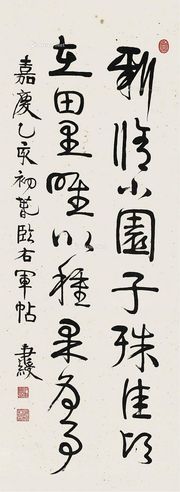 新脩小園子殊佳頃
在田里唯以種果為事
嘉慶乙亥初夏臨右軍帖 秉綬